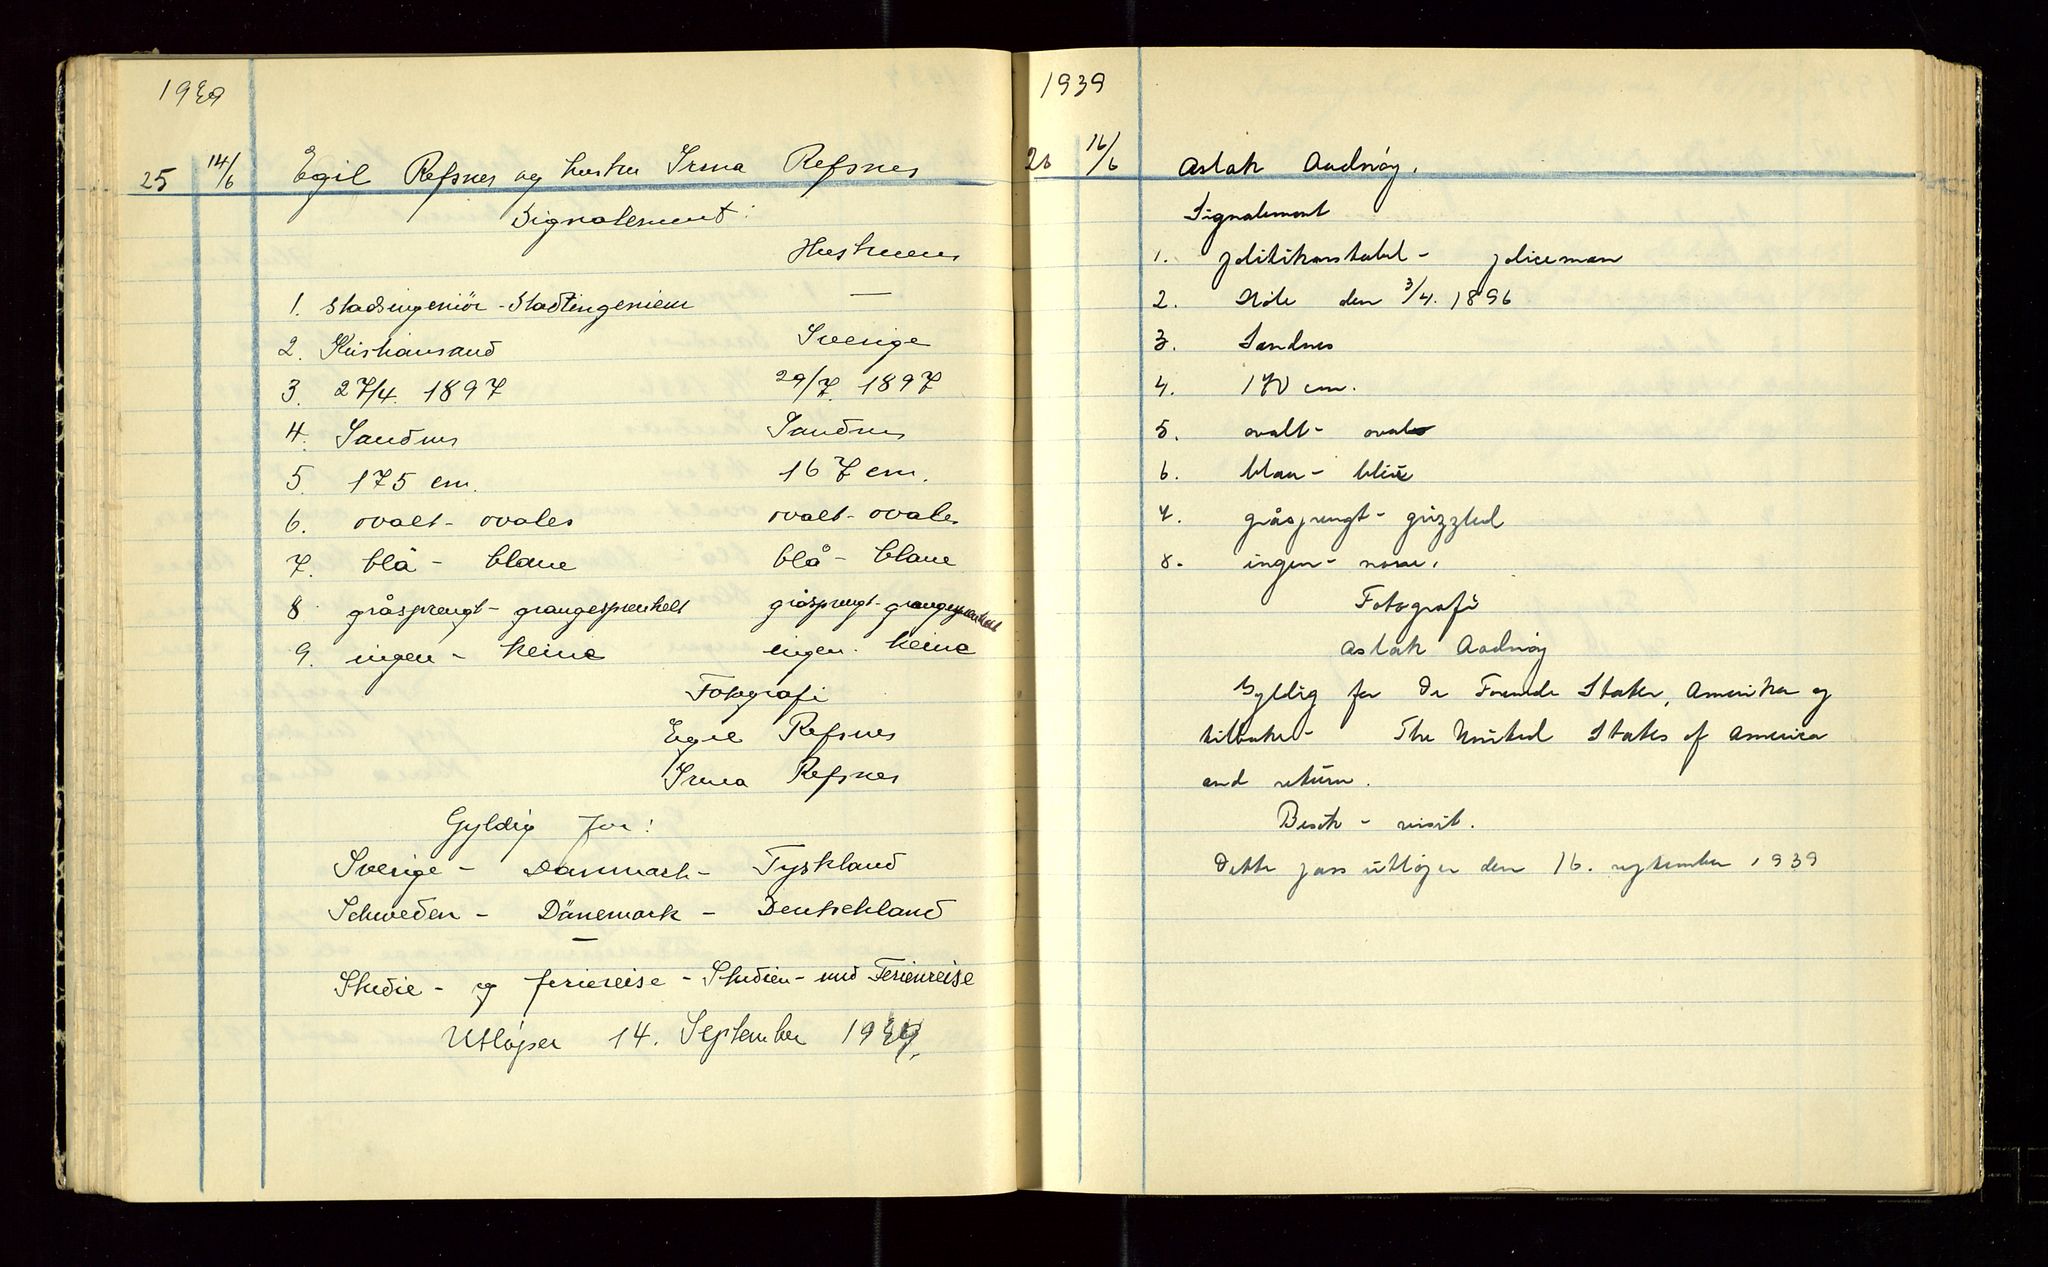 1939
25 14/6 Egil Refsnes og hustru Irma Refsnes
Signalement:
Hustruen
1. Stadsingeniør - Stadtingenieur —
2. Kristiansand Sverige
3. 27/4. 1897 29/7. 1897
4. Sandnes Sandnes
5. 175 cm. 167 cm.
6. ovalt - ovales ovalt - ovales
7. blå - blaue blå - blaue
8 gråsprengt - graugesprenkelt gråsprengt - graugesprenkelt
9. ingen - keine ingen - keine
Fotografi
Egil Refsnes
Irma Refsnes
Gyldig for:
Sverige - Danmark - Tyskland
Schweden - Dänemark - Deutschland
—
Studie - og feriereise - Studien - und Ferienreise
Utløper 14. September 1939.
1939
26 16/6 Aslak Aadnøy.
Signalement
1. politikonstabel - policeman
2. Høle den 3/4. 1896
3. Sandnes
4. 170 cm.
5. ovalt - oval
6. blaa - blue
7. gråsprengt - grizzled
8. ingen - none.
Fotografi
Aslak Aadnøy
Gyldig for De Forenede Stater, Amerika og
tilbake - The United States of America
and return.
Besøk - visit.
Dette pass utløper den 16. september 1939